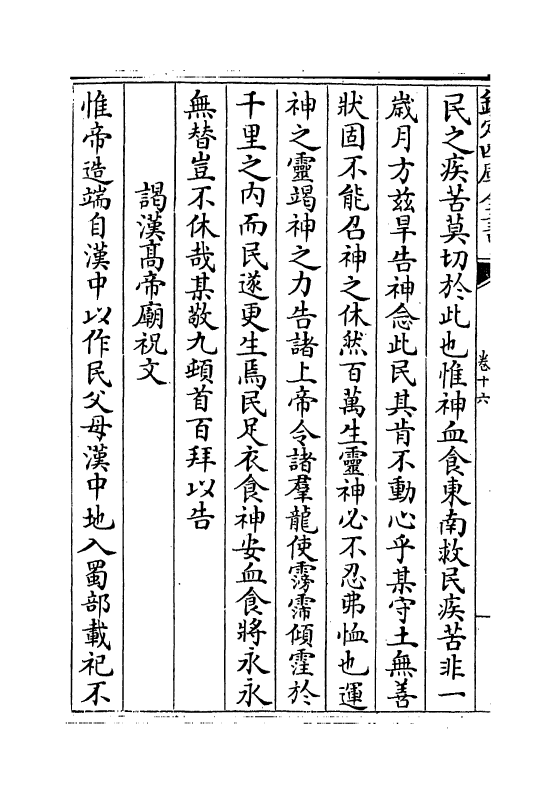 欽定四庫全書
卷十六
民之疾苦莫切於此也惟神血食東南救民疾苦非一
歳月方兹旱告神念此民其肯不動心乎某守土無善
狀固不能召神之休然百萬生靈神必不忍弗恤也運
神之靈竭神之力告諸上帝令諸羣龍使霶霈傾霔於
千里之内而民遂更生焉民足衣食神安血食將永永
無替豈不休哉某敬九頓首百拜以告
謁漢髙帝廟祝文
惟帝造端自漢中以作民父母漢中地入蜀部載祀不